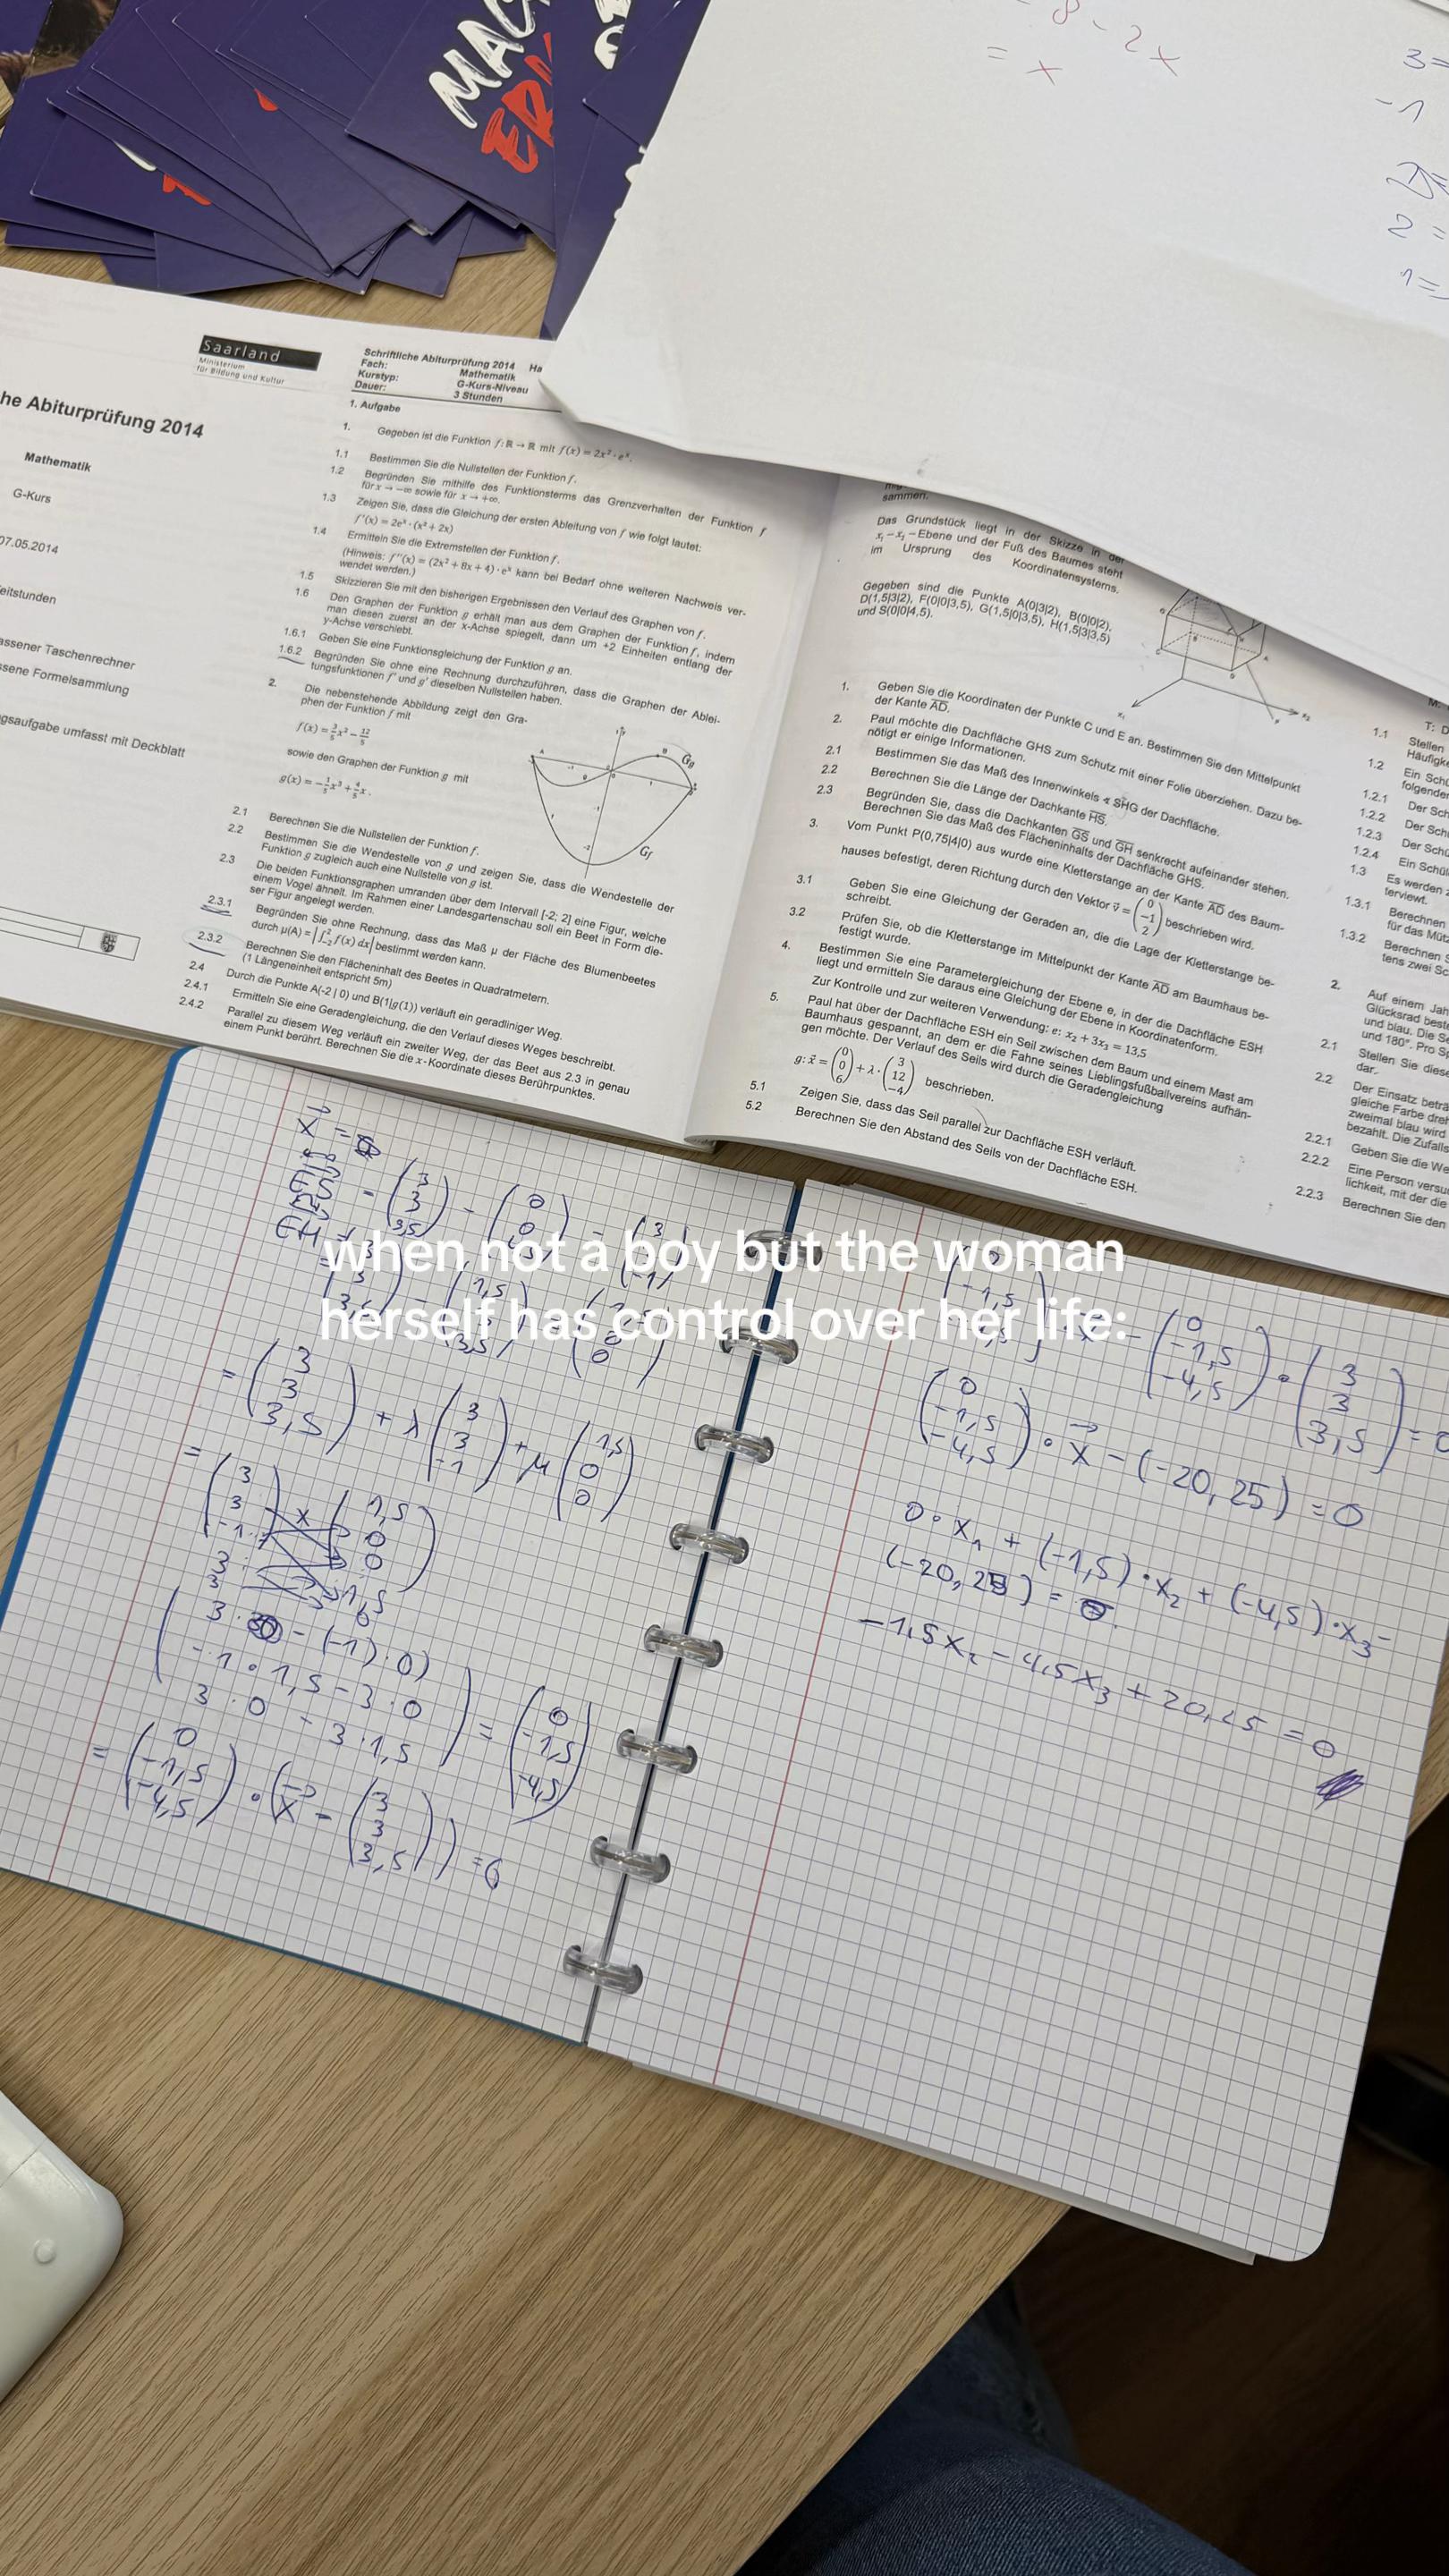 MAC
ER
8 - 2x
= x
3=
-1
2=
1=
he Abiturprüfung 2014
Mathematik
G-Kurs
07.05.2014
eitstunden
assener Taschenrechner
ssene Formelsammlung
gsaufgabe umfasst mit Deckblatt
Saarland
Ministerium
für Bildung und Kultur
Schriftliche Abiturprüfung 2014 Ha
Fach: Mathematik
Kurstyp: G-Kurs-Niveau
Dauer: 3 Stunden
1. Aufgabe
1. Gegeben ist die Funktion f: ℝ → ℝ mit f(x) = 2x² · eˣ.
1.1 Bestimmen Sie die Nullstellen der Funktion f.
1.2 Begründen Sie mithilfe des Funktionsterms das Grenzverhalten der Funktion f
für x → −∞ sowie für x → +∞.
1.3 Zeigen Sie, dass die Gleichung der ersten Ableitung von f wie folgt lautet:
f'(x) = 2eˣ · (x² + 2x)
1.4 Ermitteln Sie die Extremstellen der Funktion f.
(Hinweis: f''(x) = (2x² + 8x + 4) · eˣ kann bei Bedarf ohne weiteren Nachweis ver-
wendet werden.)
1.5 Skizzieren Sie mit den bisherigen Ergebnissen den Verlauf des Graphen von f.
1.6 Den Graphen der Funktion g erhält man aus dem Graphen der Funktion f, indem
man diesen zuerst an der x-Achse spiegelt, dann um +2 Einheiten entlang der
y-Achse verschiebt.
1.6.1 Geben Sie eine Funktionsgleichung der Funktion g an.
1.6.2 Begründen Sie ohne eine Rechnung durchzuführen, dass die Graphen der Ablei-
tungsfunktionen f' und g' dieselben Nullstellen haben.
2. Die nebenstehende Abbildung zeigt den Gra-
phen der Funktion f mit
f(x) = 3/5 x² − 12/5
sowie den Graphen der Funktion g mit
g(x) = −1/5 x³ + 4/5 x.
Gg
Gf
2.1 Berechnen Sie die Nullstellen der Funktion f.
2.2 Bestimmen Sie die Wendestelle von g und zeigen Sie, dass die Wendestelle der
Funktion g zugleich auch eine Nullstelle von g ist.
2.3 Die beiden Funktionsgraphen umranden über dem Intervall [-2; 2] eine Figur, welche
einem Vogel ähnelt. Im Rahmen einer Landesgartenschau soll ein Beet in Form die-
ser Figur angelegt werden.
2.3.1 Begründen Sie ohne Rechnung, dass das Maß μ der Fläche des Blumenbeetes
durch μ(A) = |∫₋₂² f(x) dx| bestimmt werden kann.
2.3.2 Berechnen Sie den Flächeninhalt des Beetes in Quadratmetern.
(1 Längeneinheit entspricht 5m)
2.4 Durch die Punkte A(-2 | 0) und B(1|g(1)) verläuft ein geradliniger Weg.
2.4.1 Ermitteln Sie eine Geradengleichung, die den Verlauf dieses Weges beschreibt.
2.4.2 Parallel zu diesem Weg verläuft ein zweiter Weg, der das Beet aus 2.3 in genau
einem Punkt berührt. Berechnen Sie die x-Koordinate dieses Berührpunktes.
sammen.
Das Grundstück liegt in der Skizze in der
x₁ − x₂ − Ebene und der Fuß des Baumes steht
im Ursprung des Koordinatensystems.
Gegeben sind die Punkte A(0|3|2), B(0|0|2),
D(1,5|3|2), F(0|0|3,5), G(1,5|0|3,5), H(1,5|3|3,5)
und S(0|0|4,5).
1. Geben Sie die Koordinaten der Punkte C und E an. Bestimmen Sie den Mittelpunkt
der Kante AD.
2. Paul möchte die Dachfläche GHS zum Schutz mit einer Folie überziehen. Dazu be-
nötigt er einige Informationen.
2.1 Bestimmen Sie das Maß des Innenwinkels ∢ SHG der Dachfläche.
2.2 Berechnen Sie die Länge der Dachkante HS.
2.3 Begründen Sie, dass die Dachkanten GS und GH senkrecht aufeinander stehen.
Berechnen Sie das Maß des Flächeninhalts der Dachfläche GHS.
3. Vom Punkt P(0,75|4|0) aus wurde eine Kletterstange an der Kante AD des Baum-
hauses befestigt, deren Richtung durch den Vektor v⃗ = (0 −1 2) beschrieben wird.
3.1 Geben Sie eine Gleichung der Geraden an, die die Lage der Kletterstange be-
schreibt.
3.2 Prüfen Sie, ob die Kletterstange im Mittelpunkt der Kante AD am Baumhaus be-
festigt wurde.
4. Bestimmen Sie eine Parametergleichung der Ebene e, in der die Dachfläche ESH
liegt und ermitteln Sie daraus eine Gleichung der Ebene in Koordinatenform.
Zur Kontrolle und zur weiteren Verwendung: e: x₂ + 3x₃ = 13,5
5. Paul hat über der Dachfläche ESH ein Seil zwischen dem Baum und einem Mast am
Baumhaus gespannt, an dem er die Fahne seines Lieblingsfußballvereins aufhän-
gen möchte. Der Verlauf des Seils wird durch die Geradengleichung
g: x⃗ = (0 0 6) + λ · (3 12 −4) beschrieben.
5.1 Zeigen Sie, dass das Seil parallel zur Dachfläche ESH verläuft.
5.2 Berechnen Sie den Abstand des Seils von der Dachfläche ESH.
M:
T: D
1.1 Stellen
Häufigke
1.2 Ein Schü
folgender
1.2.1 Der Sch
1.2.2 Der Schü
1.2.3 Der Schü
1.2.4 Ein Schül
1.3 Es werden
terviewt.
1.3.1 Berechnen
für das Mütz
1.3.2 Berechnen S
tens zwei Sc
2. Auf einem Jah
Glücksrad beste
und blau. Die Se
und 180°. Pro Sp
2.1 Stellen Sie diese
dar.
2.2 Der Einsatz beträ
gleiche Farbe dreh
zweimal blau wird
bezahlt. Die Zufalls
2.2.1 Geben Sie die We
2.2.2 Eine Person versu
lichkeit, mit der die
2.2.3 Berechnen Sie den
when not a boy but the woman
herself has control over her life:
= (3 3 3,5) + λ (3 3 -1) + μ (1,5 0 0)
(3 3 -1) x (1,5 0 0)
-1 · 1,5 - 3 · 0
3 · 0 - 3 · 1,5
= (0 -1,5 -4,5)
= (0 -1,5 -4,5) · (x⃗ - (3 3 3,5)) = 0
(0 -1,5 -4,5) · (3 3 3,5) = 0
(0 -1,5 -4,5) · x⃗ - (-20,25) = 0
0 · x₁ + (-1,5) · x₂ + (-4,5) · x₃ -
(-20,25) = 0
-1,5x₂ - 4,5x₃ + 20,25 = 0